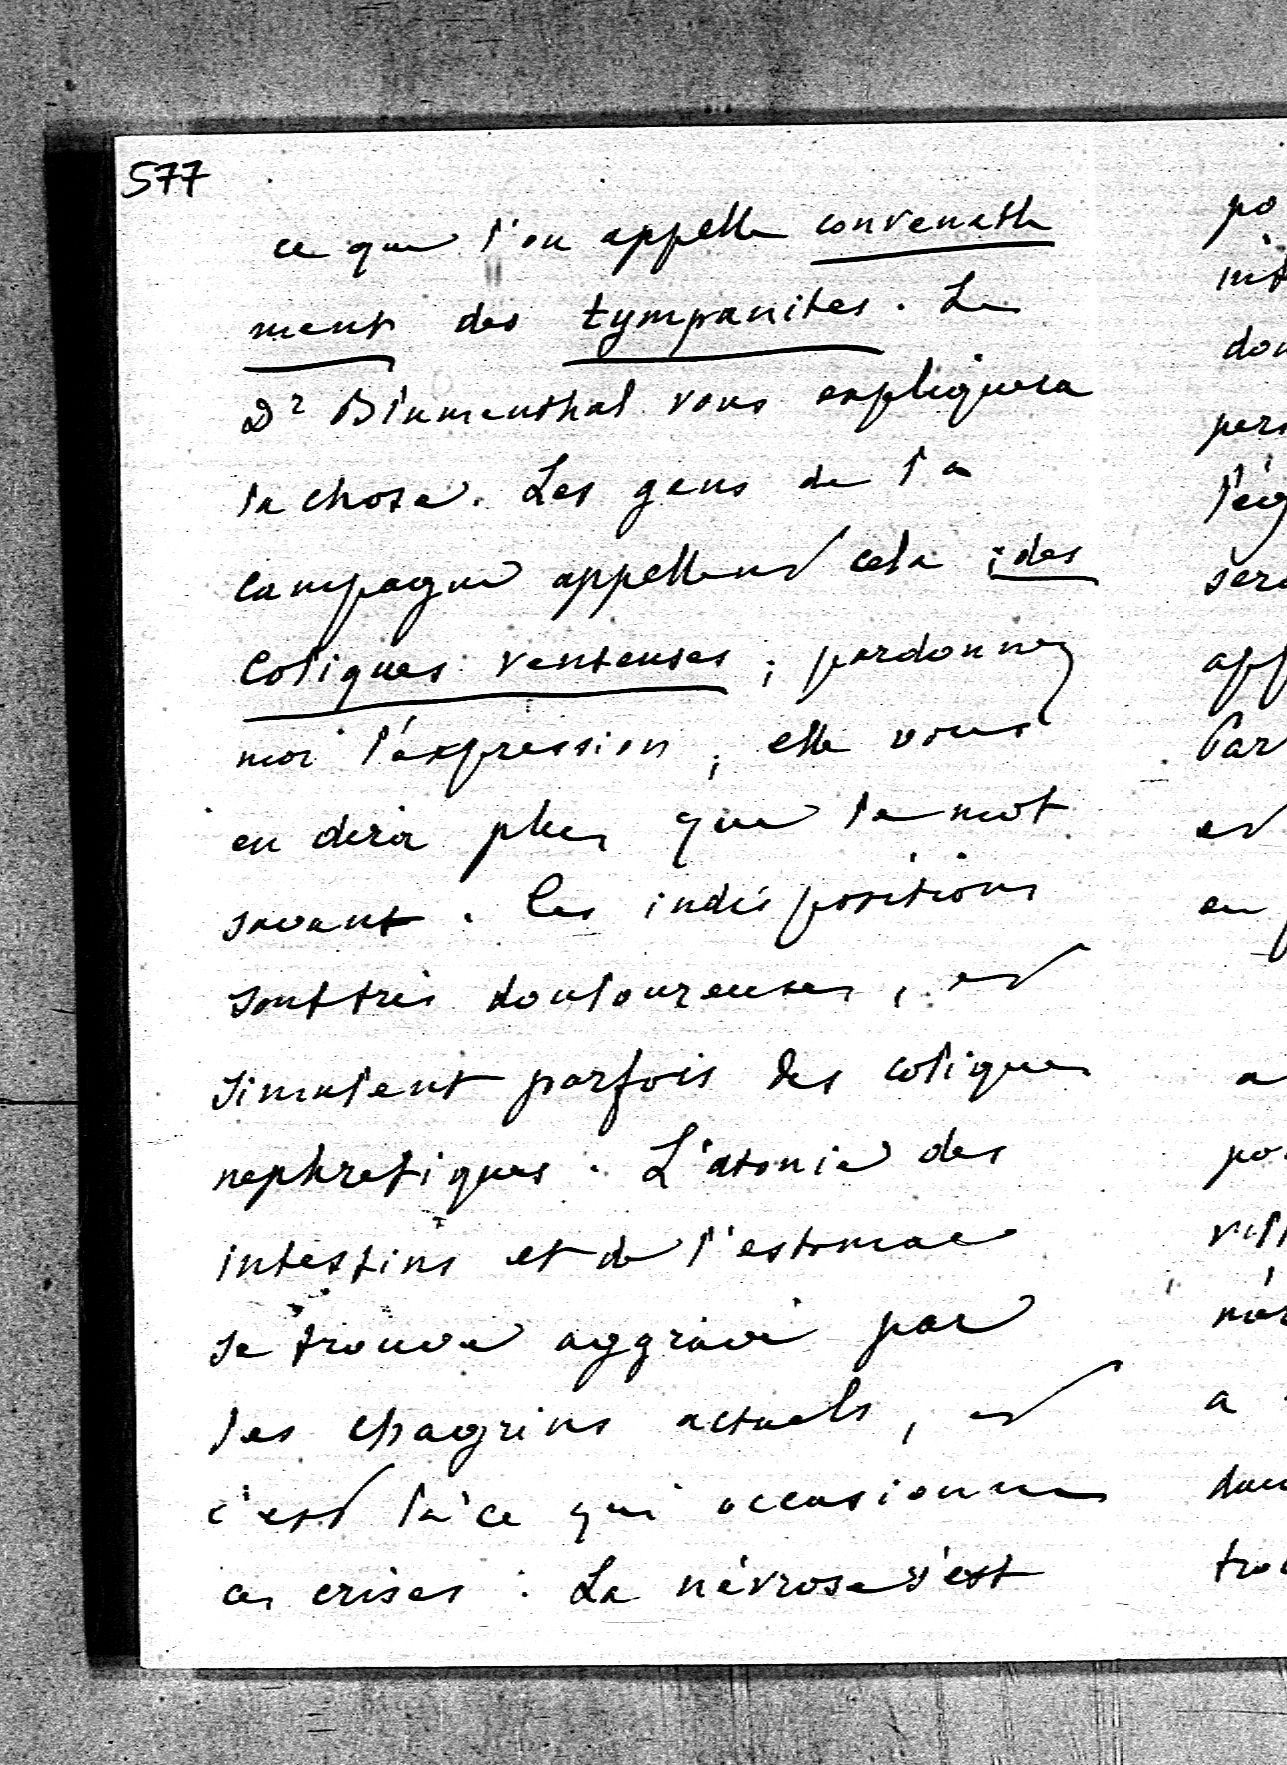 577
ce que l'on appelle convenable
ment des tympanites. Le
Dr Blumenthal vous expliquera
la chose. Les gens de la
campagne appellent cela ; des
Coliques venteuses ; pardonnez
moi l'expression ; elle vous
en dira plus que le mot
savant. Ces indispositions
sont très douloureuses, et
simulent parfois des coliques
nephretiques. L'atonie des
intestins et de l'estomac
se trouve aggravé par
les chagrins actuels, et
c'est là ce qui occasionne
ces crises : La névrose s'est
po
int
don
pers
l'ég
sera
app
Par
et
en
a
po
vill
a
dan
trou